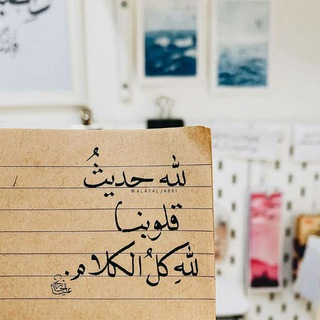 لله حديثُ
@ALAYALJABRI
قلوبنا
للهِ كلُ الكلام.